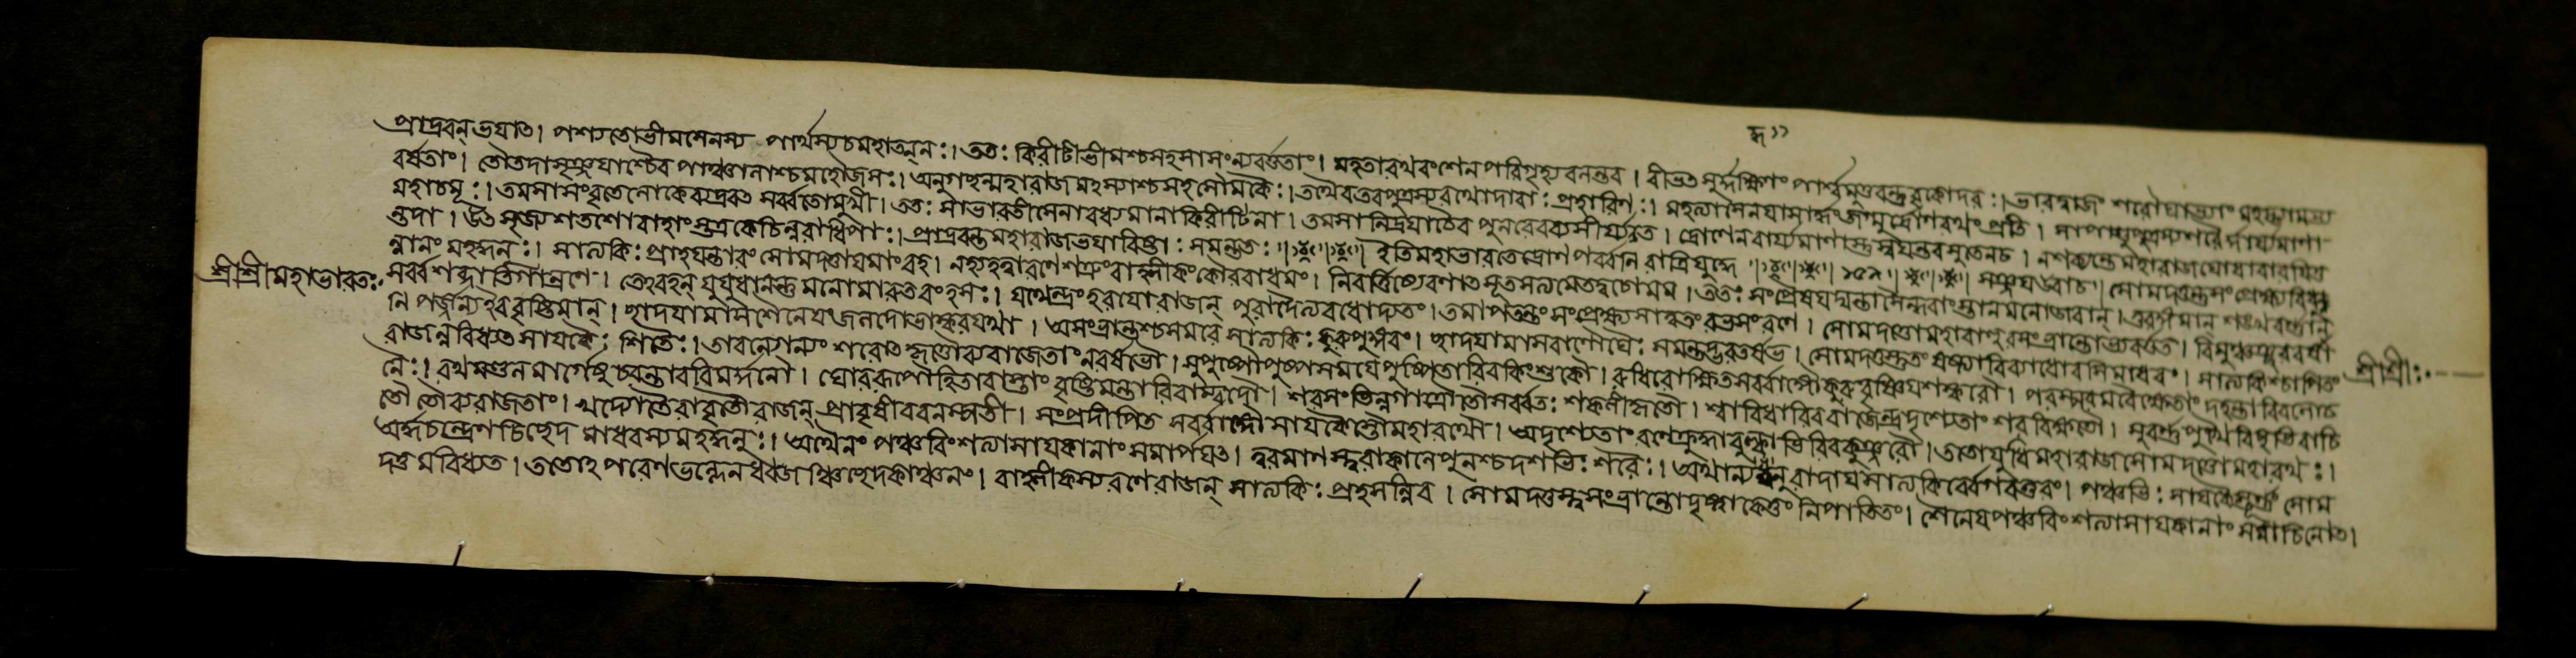 প্রাদ্রবন্ ভয়াৎ। পশ্যতোভীমসেনস্য পার্থস্যচমহাত্মনঃ। ততঃ কিরীটীভীমশ্চসহসাসংন্যবর্ত্ততাং। মহতারথবংশেনপরিগৃহ্যবলন্তব। বীভৎসুর্দ্দক্ষিণং পার্শ্বমুত্তরন্তুবৃকোদরঃ। ভারদ্বাজং শরৌঘাভ্যাং মহদ্ভ্যামভ্য
বর্ষতাং। তৌতদাসৃঞ্জয়াশ্চৈব পাঞ্চালাশ্চমহৌজসঃ। অন্বগচ্ছন্মহারাজ মৎস্যাশ্চসহসোমকৈঃ। তথৈবতবপুত্রস্যরথোদারাঃ প্রহারিণঃ। মহত্যাসেনয়াসার্দ্ধংজগ্মুর্দ্রোণরথং প্রতি। সাপাণ্ডুপুত্রস্যশরৈর্দার্য্যমাণা
মহাচমূঃ। তমসাসংবৃতেলোকেব্যদ্রবৎ সর্ব্বতোমুখী। ততঃ সাভারতীসেনাবধ্যমানাকিরীটিনা। তমসানিদ্রয়াচৈব পুনরেবব্যদীর্য্যত। দ্রোণেনবার্য্যমাণাস্তেস্বয়ন্তবসুতেনচ। নশক্যন্তেমহারাজযোধাবারয়িতু
ন্তদা। উৎসৃজ্যশতশোবাহাংস্তত্রকেচিন্নরাধিপাঃ। প্রাদ্রবন্তমহারাজভয়াবিষ্টাঃ সমন্ততঃ॥ ইতিমহাভারতেদ্রোণপর্ব্বনি রাত্রিযুদ্ধে॥ ॥ ॥ সঞ্জয়উবাচ। সোমদত্তন্তুসংপ্রেক্ষ্যবিধুন্ব
ন্নানংমহদ্ধনুঃ। সাত্যকিঃ প্রাহযন্তারংসোমদত্তায়মাংবহ। নহ্যহত্বারণেশত্রুংবাহ্লীকংকৌরবাধমং। নিবর্ত্তিষ্যেরণাৎসূতসত্যমেতদ্বচোমম। ততঃ সংপ্রৈষয়দ্যন্তাসৈন্ধবাংস্তানমনোজবান্। তুরঙ্গমান্ শঙ্খবর্ণান্
শ্রীশ্রীমহাভারতঃ
সর্ব্বশব্দাতিগান্রণে। তেহবহন্ যুযুধানন্তুমনোমারুতরংহসঃ। যথেন্দ্রংহরয়োরাজন্ পুরাদৈত্যবধোদ্যতং। তমাপতন্তংসংপ্রেক্ষ্যসাত্বতংরভসংরণে। সোমদত্তোমহাবাহুরসংভ্রান্তোভ্যবর্ত্তত। বিমুঞ্চঞ্ছরবর্ষা
নি পর্জ্জন্যইববৃষ্টিমান্। ছাদয়ামাসশৈনেয়ংজলদোভাস্করংযথা। অসংভ্রান্তশ্চসমরে সাত্যকিঃ কুরুপুঙ্গবং। ছাদয়ামাসবাণৌঘৈঃ সমন্তাদ্ভরতর্ষভ। সোমদত্তস্তুতংষষ্ট্যাবিব্যাধোরসিমাধবং। সাত্যকিশ্চাপিতং
শ্রীশ্রীঃ
রাজন্নবিধ্যৎসায়কৈঃ শিতৈঃ। তাবন্যোন্যং শরৈঃকৃত্তৌব্যরাজেতাংনরর্ষভৌ। সুপুষ্পৌপুষ্পসময়েপুষ্পিতাবিবকিংশুকৌ। রুধিরোক্ষিতসর্ব্বাঙ্গৌকুরুবৃষ্ণিযশস্করৌ। পরস্পরমবেক্ষেতাংদহন্তাবিবলোচ
নৈঃ। রথমণ্ডলমার্গেষুচরন্তাবরিমর্দ্দনৌ। ঘোররূপৌহিতাবাস্তাং বৃষ্টিমন্তাবিবাম্বুদৌ। শরসংভিন্নগাত্রৌতৌসর্ব্বতঃ শকলীকৃতৌ। শ্বাবিধাবিবরাজেন্দ্রদৃশ্যেতাং শরবিক্ষতৌ। সুবর্ণপুঙ্খৈরিষুভিরাচি
তৌ তৌব্যরাজতাং। খদ্যোতৈরাবৃতৌরাজন্ প্রাবৃষীববনস্পতী। সংপ্রদীপিত সর্ব্বাঙ্গৌসায়কৈস্তৌমহারথৌ। অদৃশ্যেতাং রণেক্রুদ্ধাবুল্কাভিরিবকুঞ্জরৌ। ততোযুধিমহারাজসোমদত্তোমহারথঃ।
অর্দ্ধচন্দ্রেণচিচ্ছেদ মাধবস্যমহদ্ধনুঃ। অথৈনং পঞ্চবিংশত্যাসায়কানাংসমার্পয়ৎ। ত্বরমাণস্ত্বরাকালেপুনশ্চদশভিঃ শরৈঃ। অথান্যদ্ধনুরাদায়সাত্যকির্বেগবত্তরং। পঞ্চভিঃ সায়কৈস্তূর্ণং সোম
দত্তমবিধ্যত। ততোঽপরেণভল্লেনধ্বজঞ্চিচ্ছেদকাঞ্চনং। বাহ্লীকস্যরণেরাজন্ সাত্যকিঃ প্রহসন্নিব। সোমদত্তস্ত্বসংভ্রান্তোদৃষ্ট্বাকেতুং নিপাতিতং। শৈনেয়ংপঞ্চবিংশত্যাসায়কানাং সমাচিনোৎ।